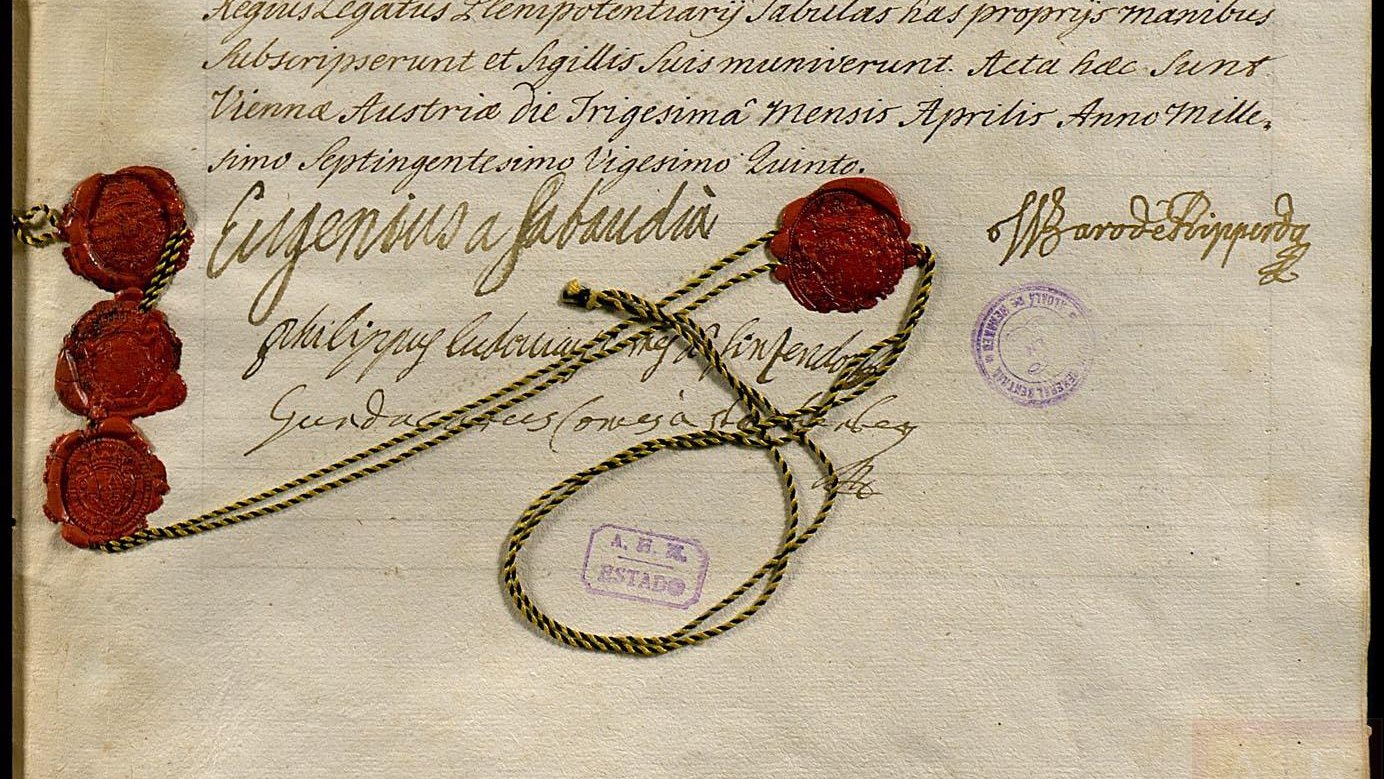 Regius Legatus Plenipotentiarij Tabulas has proprijs manibus
Subscripserunt et Sigillis Suis muniverunt. Acta hæc Sunt
Viennæ Austriæ die Trigesimâ Mensis Aprilis Anno Mille-
simo Septingentesimo Vigesimo Quinto.
Eugenius a Sabaudiâ
Baro de Ripperda
Philippus Ludovicus Comes à Sinzendorff
Gundacarus Comes à Starhemberg
ALCALÁ DE HENARES
GENERAL CENTRAL
A. H. N.
ESTADO